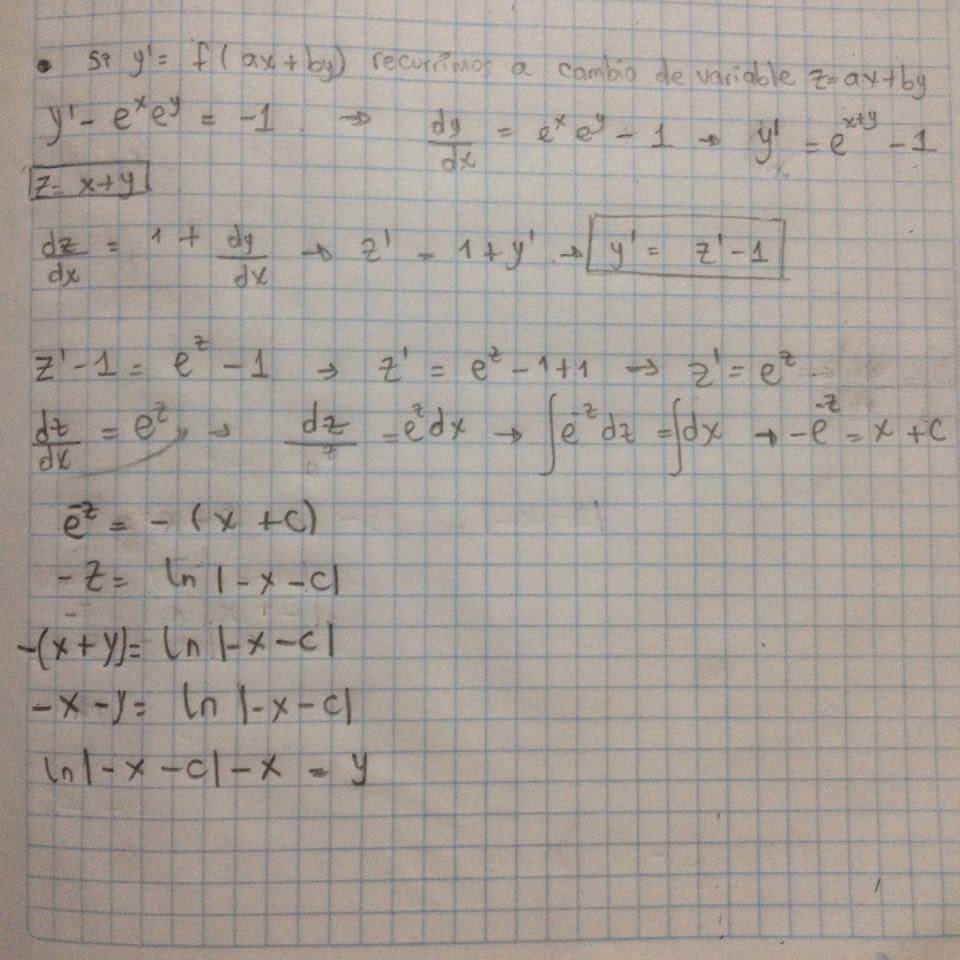 • Si y' = f(ax+by) recurrimos a cambio de variable z=ax+by
y' - eˣeʸ = -1 → dy/dx = eˣ eʸ - 1 → y' = eˣ⁺ʸ - 1
z= x+y
dz/dx = 1 + dy/dx → z' = 1+y' → y' = z'-1
z'-1 = eᶻ - 1 → z' = eᶻ - 1+1 → z' = eᶻ
dz/dx = eᶻ → dz = eᶻdx → ∫e⁻ᶻdz = ∫dx → -e⁻ᶻ = x + c
e⁻ᶻ = - (x + c)
- z = ln |-x - c|
-(x+y) = ln |-x - c|
-x - y = ln |-x - c|
ln |-x - c| - x = y